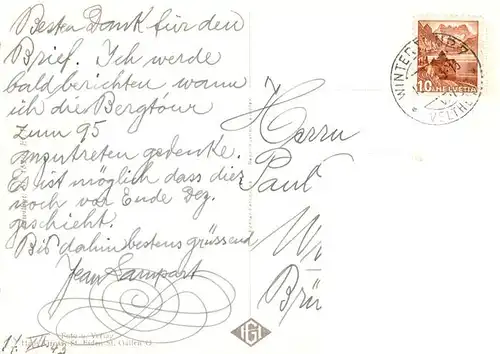 Besten Dank für den
Brief. Ich werde
bald berichten wann
ich die Bergtour
zum 95
anzutreten gedenke.
Es ist möglich dass dies
noch vor Ende Dez.
geschieht.
Bis dahin bestens grüssend
Jean Lampart
Herrn
Paul
Brü
10 HELVETIA
WINTERTHUR
VELTH